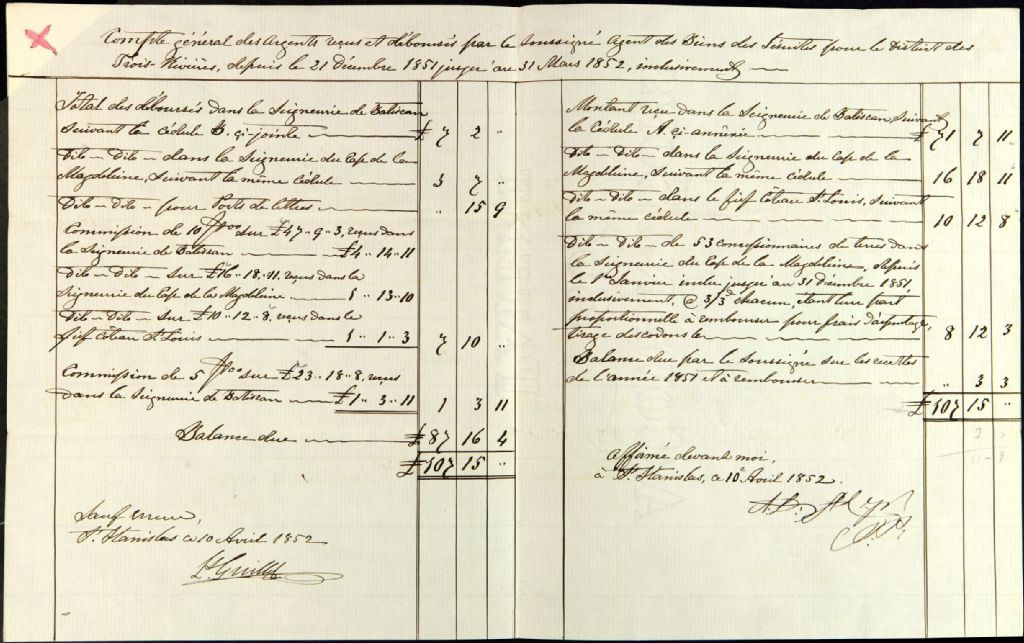 Compte général des argents reçus et déboursés par le soussigné Agent des Biens des Jésuites pour le District des
Trois-Rivières, depuis le 21 Décembre 1851 jusqu'au 31 Mars 1852, inclusivement
Total des déboursés dans la Seigneurie de Batiscan
suivant la cédule B. ci-jointe £ 7 2 "
Dito - Dito - dans la Seigneurie du Cap de la
Magdeleine, suivant la même cédule 3 7 "
Dito - Dito - pour Ports de lettres " 15 9
Commission de 10 sur £47..9..3, reçus dans
la Seigneurie de Batiscan £4..14..11
Dito - Dito - sur £16..18..11, reçus dans la
Seigneurie du Cap de la Magdeleine 1..13..10
Dito - Dito - sur £10..12..8, reçus dans le
fief Côteau St. Louis 1..1..3 7 10 "
Commission de 5 sur £23..18..8, reçus
dans la Seigneurie de Batiscan £1..3..11 1 3 11
Balance due £ 87 16 4
£ 107 15 "
Sauf erreur,
St. Stanislas, ce 10 Avril 1852
Ls. Guillet
Montant reçu dans la Seigneurie de Batiscan, suivant
la Cédule A. ci-annexée £ 71 7 11
Dito - Dito - dans la Seigneurie du Cap de la
Magdeleine, suivant la même cédule 16 18 11
Dito - Dito - dans le fief Côteau St. Louis, suivant
la même cédule 10 12 8
Dito - Dito - de 53 concessionnaires de terres dans
la Seigneurie du Cap de la Magdeleine, depuis
le 1er Janvier inclu jusqu'au 31 Décembre 1851,
inclusivement, @ 3/3d chacun, étant leur part
proportionnelle à rembourser pour frais d'arpentage,
tirage des cordons &c 8 12 3
Balance due par le soussigné sur les recettes
de l'année 1851 et à rembourser " 3 3
£ 107 15 "
Affirmé devant moi,
à St. Stanislas, ce 10e Avril 1852.
J.P.